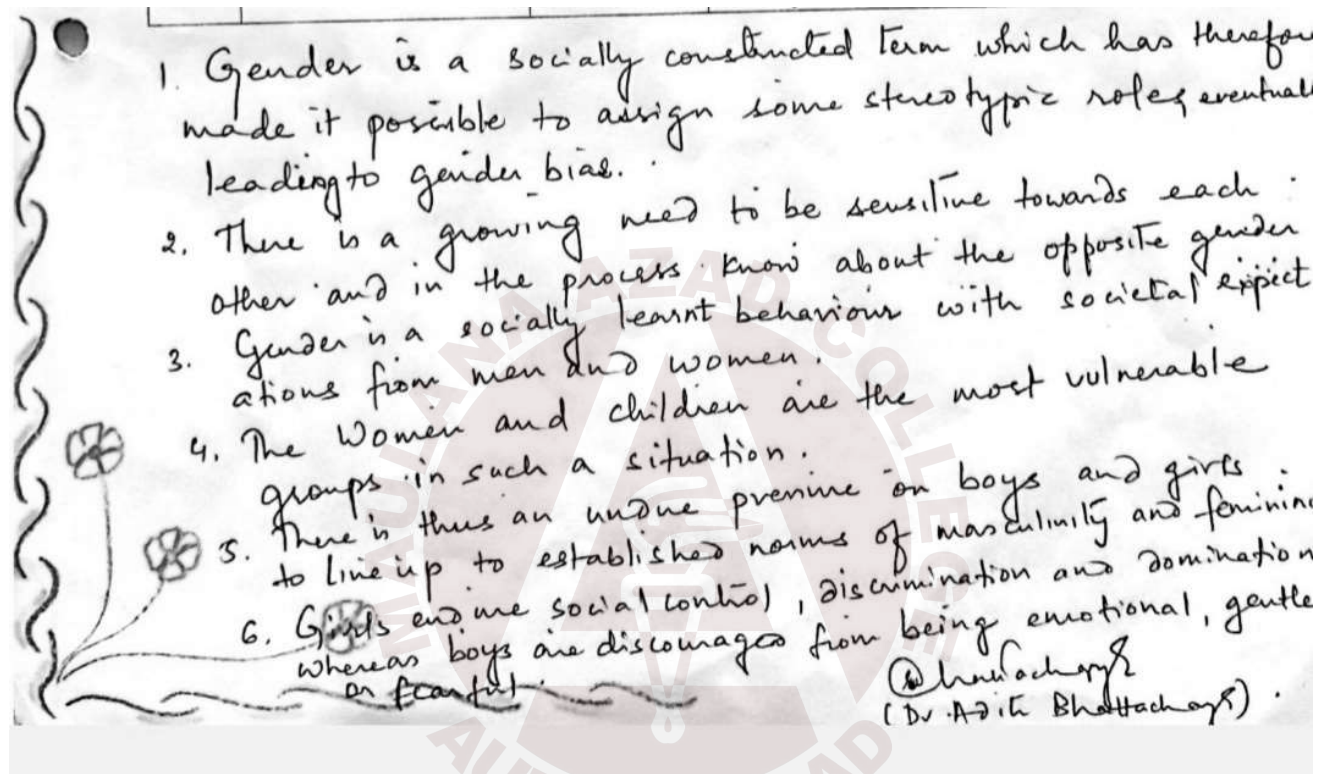 1. Gender is a socially constructed term which has therefor
made it possible to assign some stereotypic roles, eventuall
leading to gender bias.
2. There is a growing need to be sensitive towards each
other and in the process know about the opposite gender
3. Gender is a socially learnt behaviour with societal expect
ations from men and women.
4. The Women and children are the most vulnerable
groups in such a situation.
5. There is thus an undue on boys and girls
to line up to established norms of masculinity and feminin
6. Girls endure social control, discrimination and domination
whereas boys are discouraged from being emotional, gentle
or fearful.
(Dr. Aditi Bhattacharya).
MAULANA AZAD COLLEGE